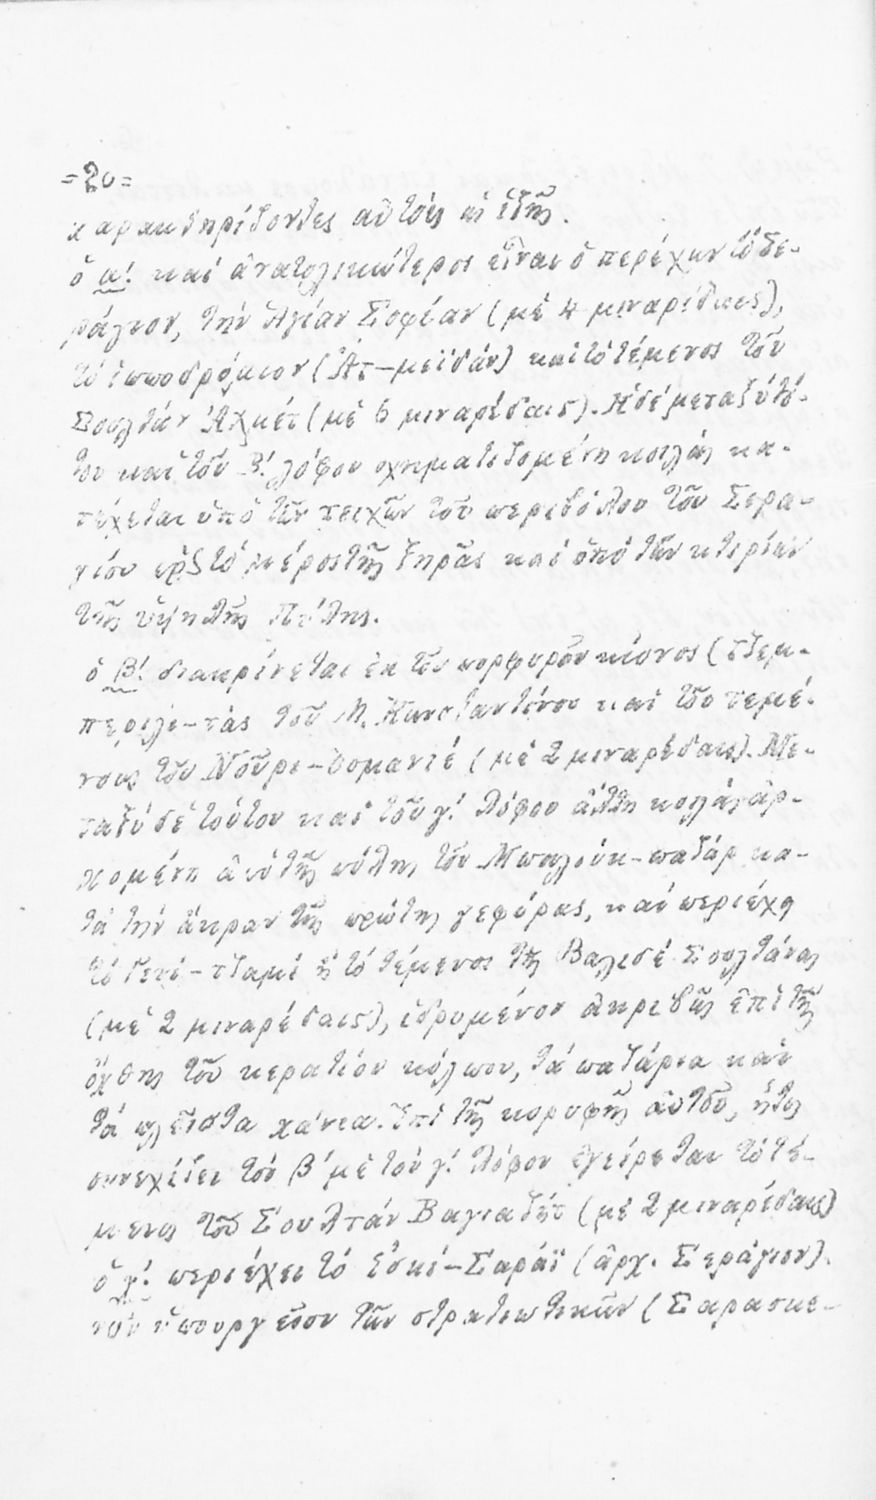 =20=
χαρακτηρίζοντες αὐτούς ὡς ἑξῆς.
ὁ α! καί ἀνατολικώτερος εἶναι ὁ περέχων τό Σε-
ράγιον, τήν Ἁγίαν Σοφίαν (μέ 4 μιναρέδαις),
τό ἱπποδρόμιον (Ἀτ-μεϊδάν) καί τό τέμενος τοῦ
Σουλτάν Ἀχμέτ (μέ 6 μιναρέδαις). Ἡ δέ μεταξύ τού-
του καί τοῦ Β! λόφου σχηματιζομένη κοιλάς κα-
τέχεται ὑπό τῶν τειχῶν τοῦ περιβόλου τοῦ Σερα-
γίου πρός τό μέρος τῆς ξηρᾶς καί ὑπό τῶν κτιρίων
τῆς ὑψηλῆς Πύλης.
ὁ β! διακρίνεται ἐκ τοῦ πορφυροῦ κίονος (Τζεμ-
περλι-τάς τοῦ Μ. Κωνσταντίνου καί τοῦ τεμέ-
νους τοῦ Νοῦρι-Οσμανιέ (μέ 2 μιναρέδαις). Με-
ταξύ δέ τούτου καί τοῦ γ! λόφου ἄλλη κοιλάς ἀρ-
χομένη ἀπό τῆς πύλης τοῦ Μπαλούκ-παζάρ κα-
τά τήν ἄκραν τῆς πρώτης γεφύρας, καί περιέχη
τό Γενί-τζαμί ἤ τό τέμενος τῆς Βαλιδέ Σουλτάνας
(μέ 2 μιναρέδαις), ἱδρυμένον ἀκριβῶς ἐπί τῆς
ὄχθης τοῦ κερατίου κόλπου, τά παζάρια καί
τά πλεῖστα χάνια. Ἐπί τῆς κορυφῆς αὐτοῦ, ἥτις
συνεχίζει τόν β! μέ τόν γ! λόφον ἐγείρεται τό τέ-
μενος τοῦ Σουλτάν Βαγιαζήτ (μέ 2 μιναρέδαις)
ὁ γ! περιέχει τό Ἐσκί-Σαράϊ (ἀρχ. Σεράγιον).
τοῦ ὑπουργεῖον τῶν στρατιωτικῶν (Σαρασκε-